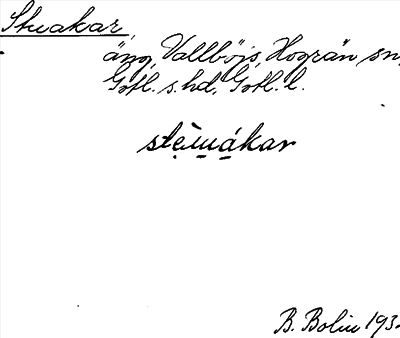 Stuakar,
äng, Vallböjs, Hogrän sn,
Gotl. s. hd, Gotl. l.
stẹ̀u̠á̠kar
B. Bolin 193